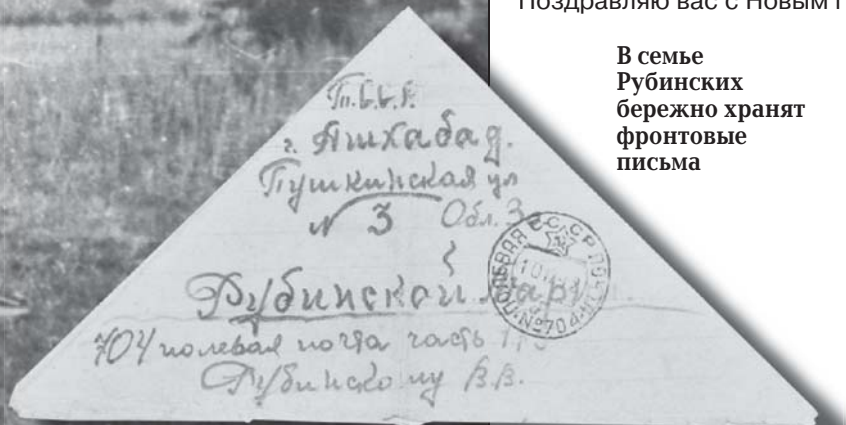 Поздравляю вас с Новым
В семье
Рубинских
бережно хранят
фронтовые
письма
г. Ашхабад.
Пушкинская ул
N 3 Обл. 3
Рубинской
704 полевая почта часть
Рубинскому В.В.
СССР
ПОЛЕВАЯ
№704